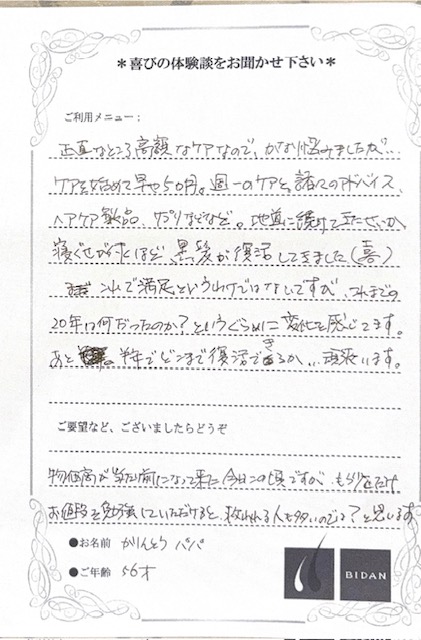 ＊喜びの体験談をお聞かせ下さい＊
ご利用メニュー：
正直なところ高額なケアなので、かなり悩みましたが…
ケアを始めて早や5ヶ月。週一のケアと、諸々のアドバイス、
ヘアケア製品、サプリなどなど。地道に続けて来たせいか
寝ぐせが付くほど、黒髪が復活してきました（喜）
まだこれで満足というわけではないですが、これまでの
20年は何だったのか？というぐらいに変化を感じてます。
あと 半年でどこまで復活できるか… 頑張います。
ご要望など、ございましたらどうぞ
物価高が当たり前になって来た今日この頃ですが、もう少しだけ
お値段を勉強していただけると、救われる人も多いのでは？と思います
●お名前 かりんとうパパ
●ご年齢 56才
BIDAN